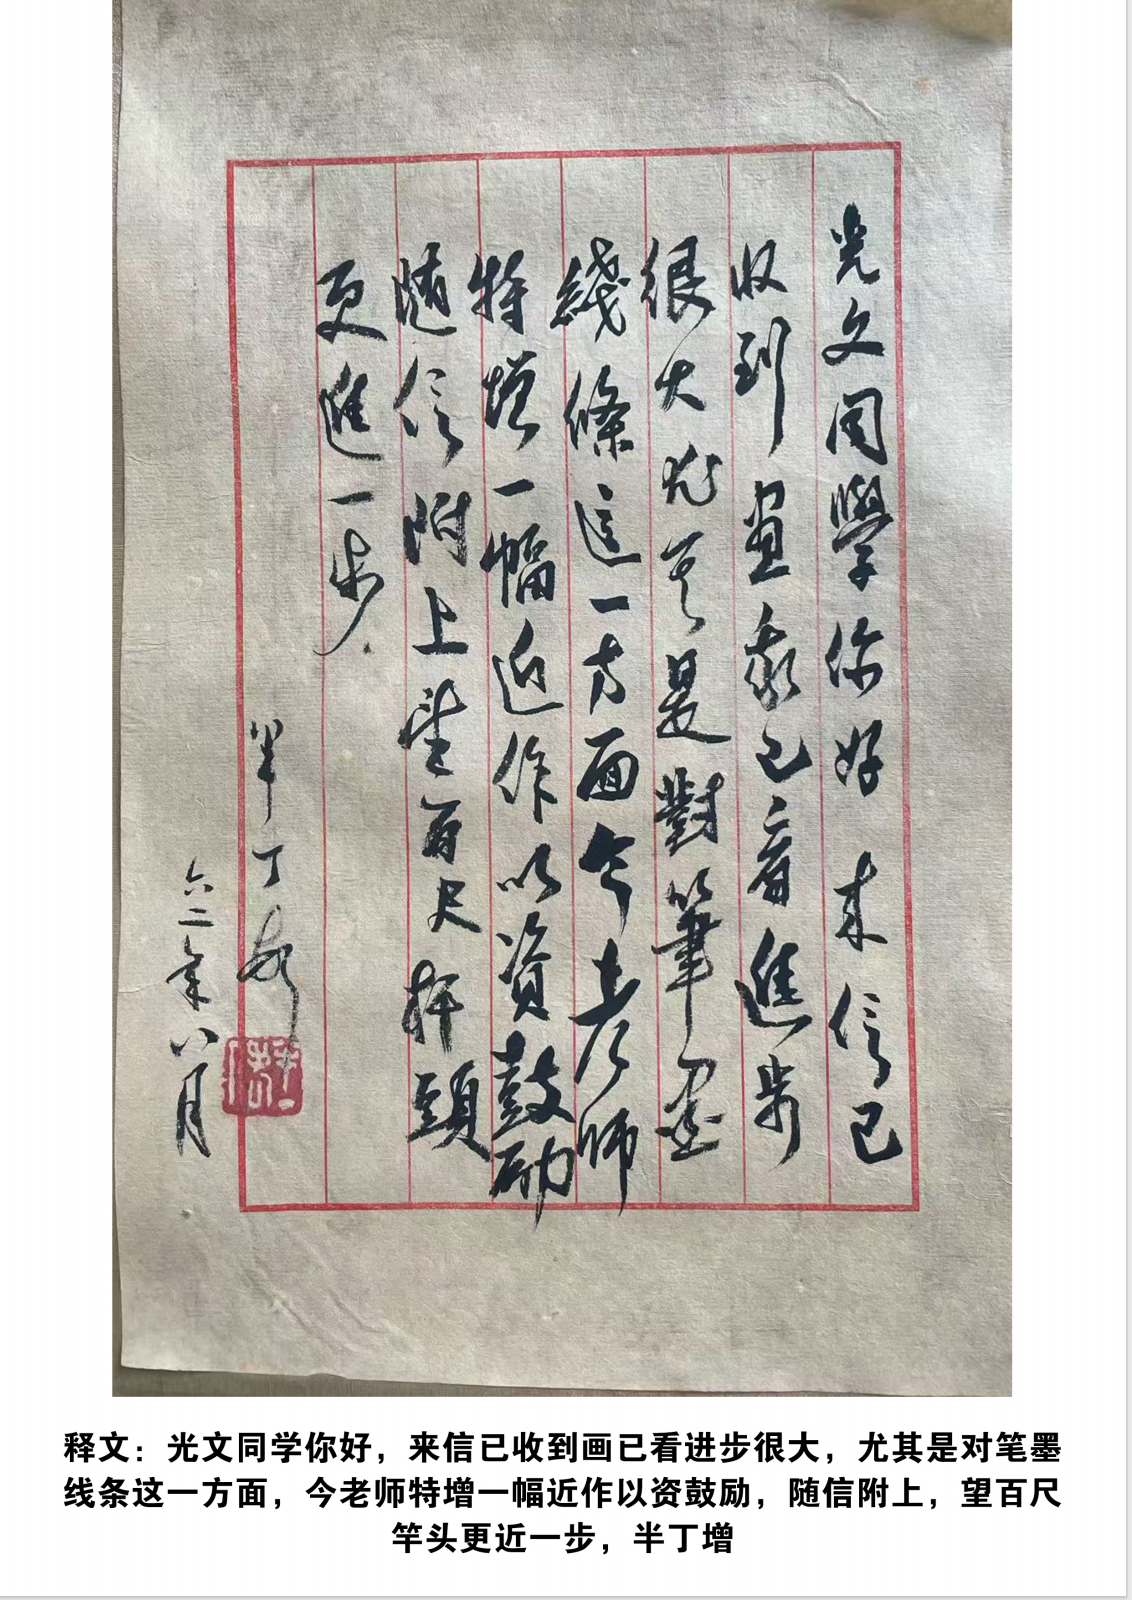 光文同學你好来信已
收到畫我已看進步
很大尤其是對筆墨
綫條這一方面今老师
特增一幅近作以资鼓励
随信附上望百尺杆頭
更進一步
半丁
六二年八月
释文：光文同学你好，来信已收到画已看进步很大，尤其是对笔墨
线条这一方面，今老师特增一幅近作以资鼓励，随信附上，望百尺
竿头更近一步，半丁增